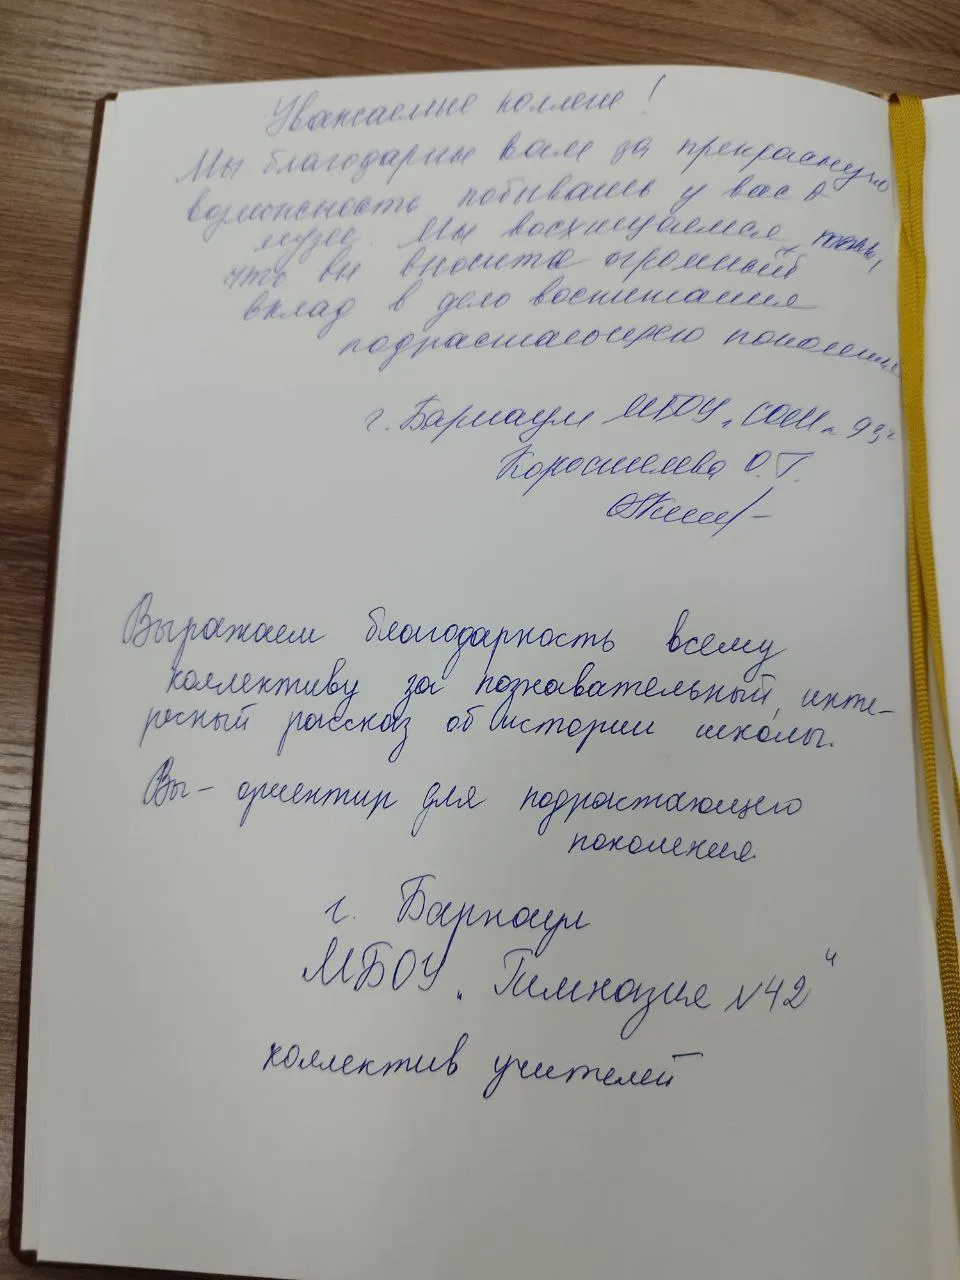 Уважаемые коллеги!
Мы благодарим вас за прекрасную
возможность побывать у вас в
музее. Мы восхищаемся тем,
что вы вносите огромный
вклад в дело воспитания
подрастающего поколения
г. Барнаул МБОУ "СОШ" 93"
Коростелева О.Г.
Выражаем благодарность всему
коллективу за познавательный, инте-
ресный рассказ об истории школы.
Вы - ориентир для подрастающего
поколения
г. Барнаул
МБОУ "Гимназия №42"
коллектив учителей